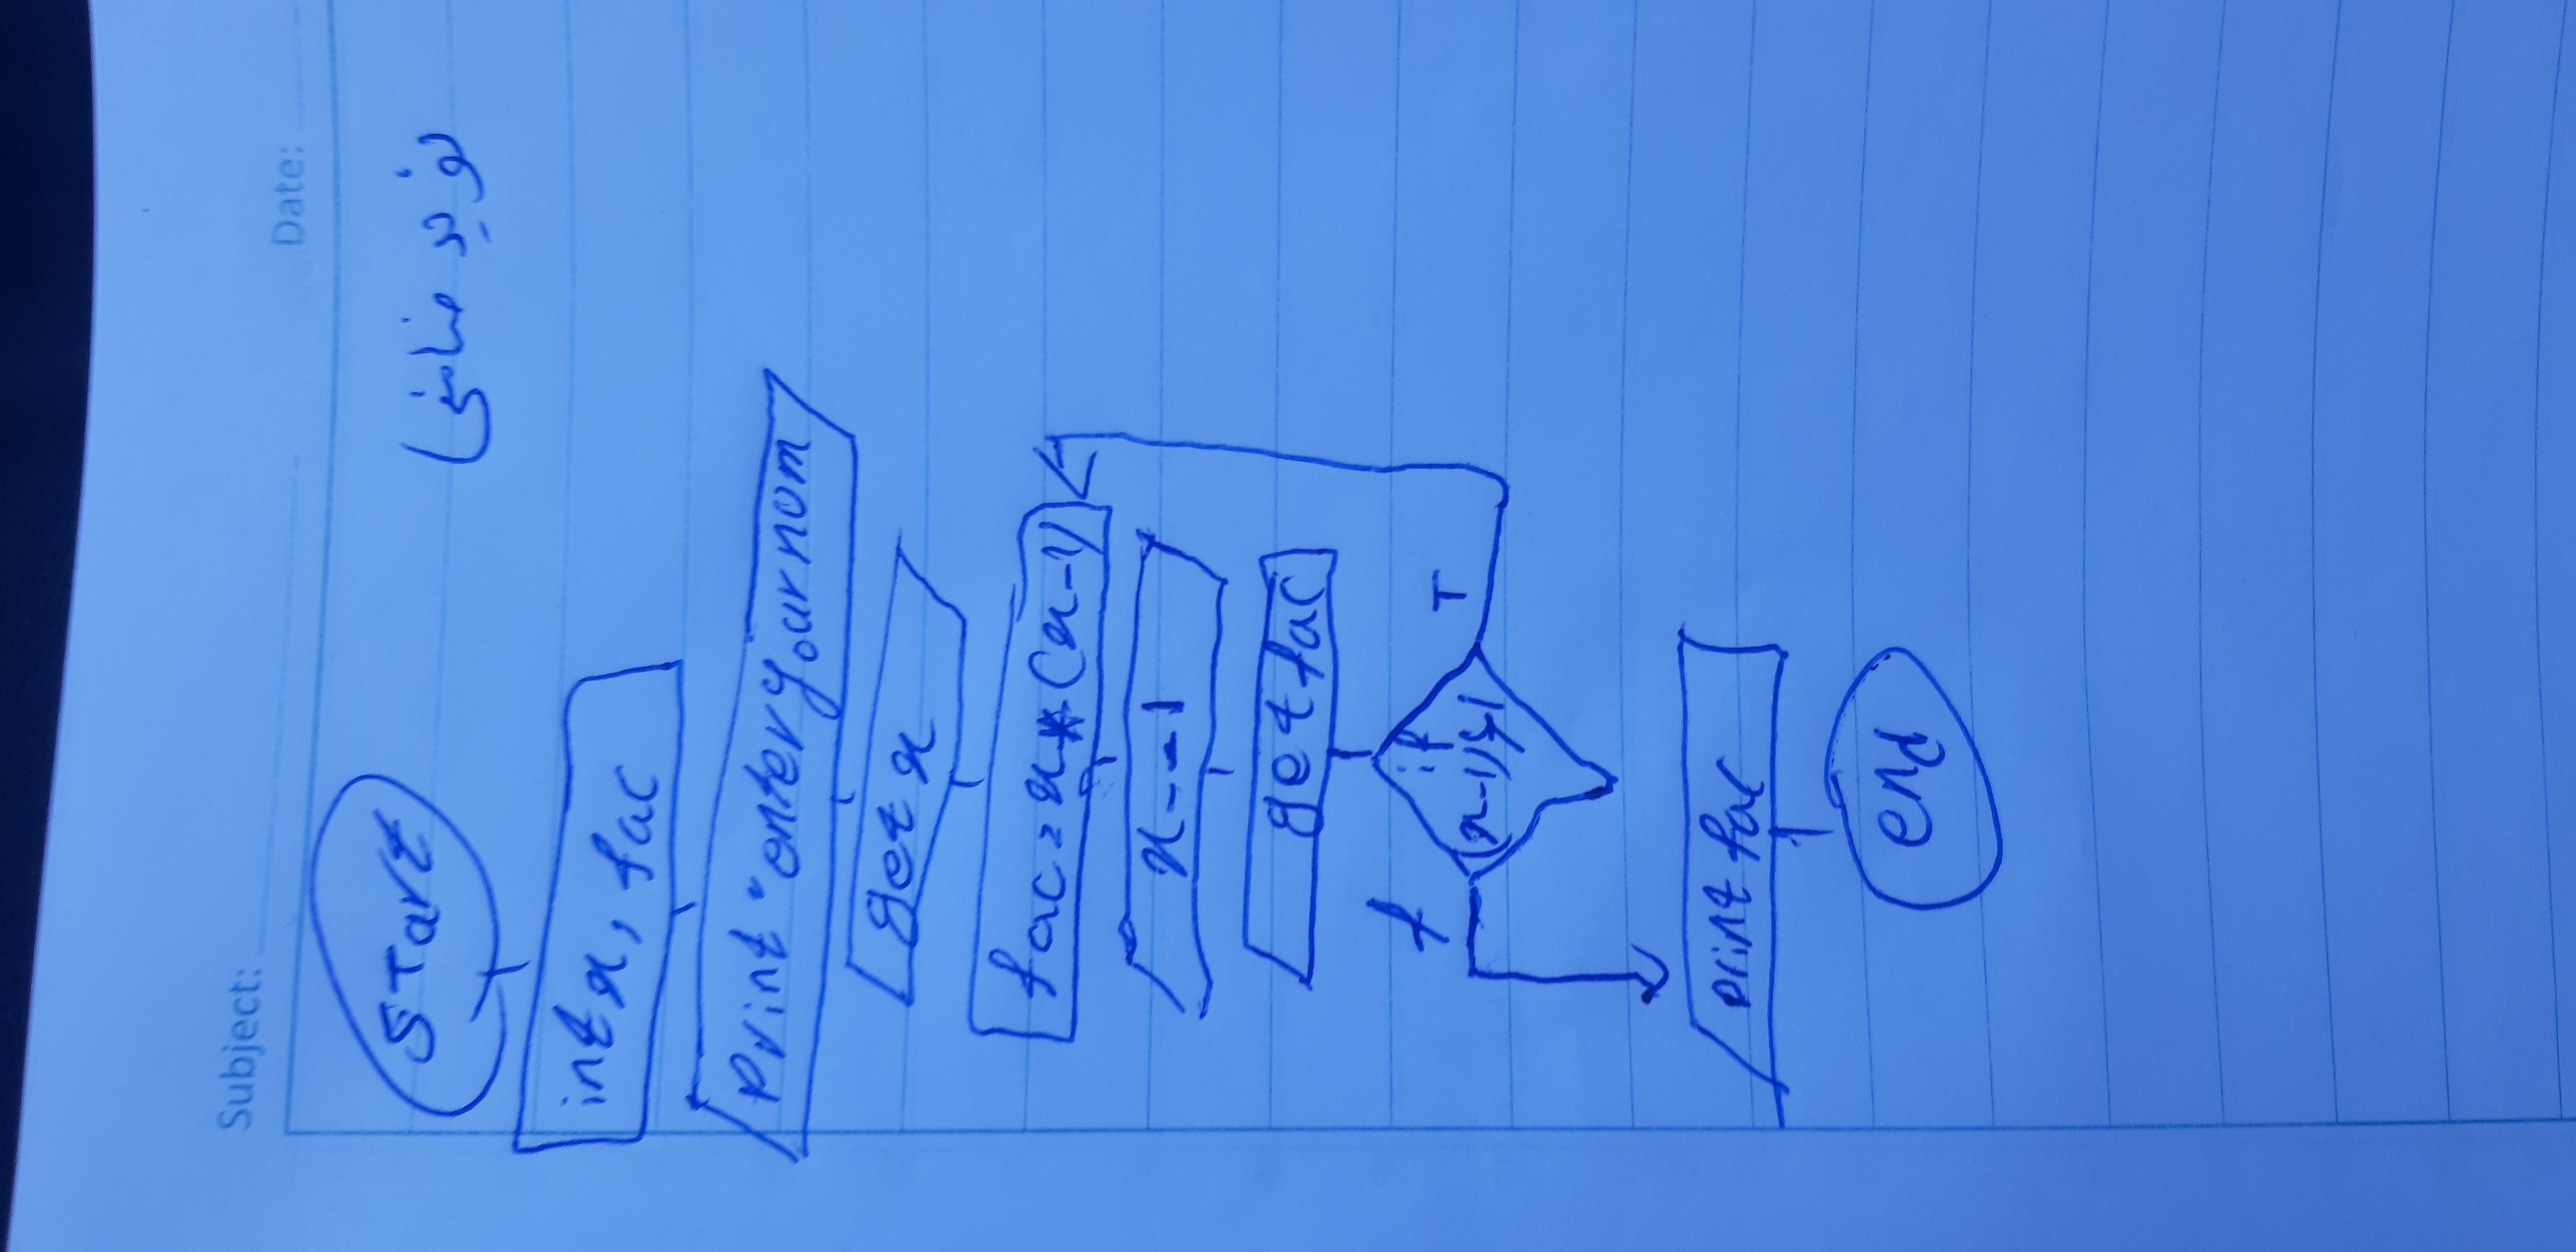 Subject:
Date:
نوید ضامنی
START
int x, fac
print "enter your num
get x
fac = x * (x-1)
x--1
get fac
if
(x-1)>1
f
T
print fac
end